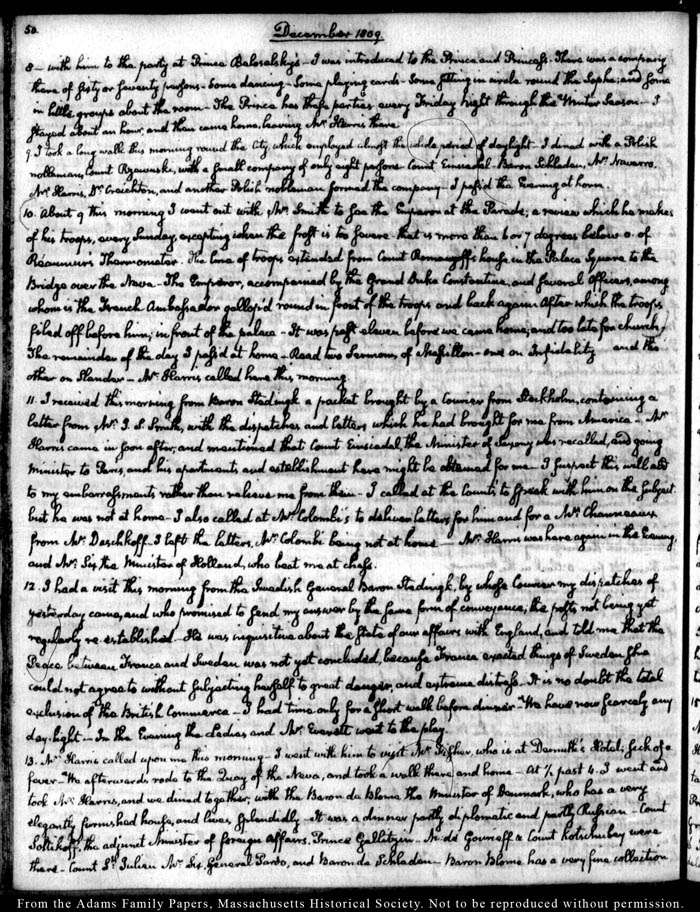 50.
December 1809
8 – with him to the party at Prince Baloselsky's – I was introduced to the Prince and Princess. There was a company
there of sixty or seventy persons. Some dancing – Some playing cards – Some sitting in circle round the Sopha; and some
in little groups about the room – The Prince has these parties every Friday night through the Winter Season – I
stayed about an hour, and then came home, leaving Mr Harris there.
9. I took a long walk this morning round the City, which employed almost the whole period of daylight – I dined with a Polish
nobleman, Count Rzewuski, with a small company of only eight persons – Count Einsiedel, Baron Schladen, Mr Navarro,
Mr Harris, Dr Creighton, and another Polish nobleman formed the company – I pass'd the Evening at home.
10. About 9 this morning I went out with Mr Smith to see the Emperor at the Parade; a review which he makes
of his troops, every Sunday, excepting when the frost is too severe that is more than 6 or 7 degrees below 0. of
Reaumur's Thermometer. The line of troops extended from Count Romanzoff's house in the Palace Square to the
Bridge over the Neva – The Emperor, accompanied by the Grand Duke Constantine, and several Officers, among
whom is the French Ambassador gallop'd round in front of the troops and back again After which the troops
filed off before him; in front of the palace – It was past eleven before we came home; and too late for church,
The remainder of the day I pass'd at home – Read two Sermons, of Massillon – one on Infidelity and the
other on Slander – Mr Harris called here this morning
11. I received this morning from Baron Stedingk a packet brought by a Courier from Stockholm, containing a
letter from Mr J. S. Smith, with the dispatches and letters which he had brought for me from America – Mr
Harris came in soon after, and mentioned that Count Einsiedel, the Minister of Saxony was recalled, and going
Minister to Paris, and his apartments and establishment here might be obtained for me – I suspect this will add
to my embarrassments rather than relieve me from them – I called at the Count's to speak with him on the subject.
but he was not at home – I also called at Mr Colombi's to deliver letters for him and for a Mr
from Mr Daschkoff. I left the letters, Mr Colombi being not at home — Mr Harris was here again in the Evening,
and Mr Six the Minister of Holland, who beat me at chess.
12. I had a visit this morning from the Swedish General Baron Stedingk, by whose Courier my dispatches of
yesterday came, and who promised to send my answer by the same form of conveyance; the posts not being yet
regularly re-established – He was inquisitive about the State of our affairs with England, and told me that the
Peace between France and Sweden was not yet concluded, because France exacted things of Sweden she
could not agree to without subjecting herself to great danger, and extreme distress – It is no doubt the total
exclusion of the British Commerce – I had time only for a short walk before dinner – We have now scarcely any
day-light – In the Evening the Ladies and Mr Everett went to the play.
13. Mr Harris called upon me this morning – I went with him to visit Mr Fisher, who is at Demuth's Hotel; sick of a
fever – We afterwards rode to the Quay of the Neva, and took a walk there and home – At ½ past 4. I went and
took Mr Harris, and we dined together, with the Baron de Blome the Minister of Denmark, who has a very
elegantly furnished house, and lives splendidly – It was a dinner partly diplomatic and partly Russian – Count
Soltikoff, the adjunct Minister of foreign Affairs, Prince Gallitzin – M. de Gourieff & Count Kotschubay were
there – Count St Julien Mr Six, General Pardo, and Baron de Schladen – Baron Blome has a very fine collection
From the Adams Family Papers, Massachusetts Historical Society. Not to be reproduced without permission.